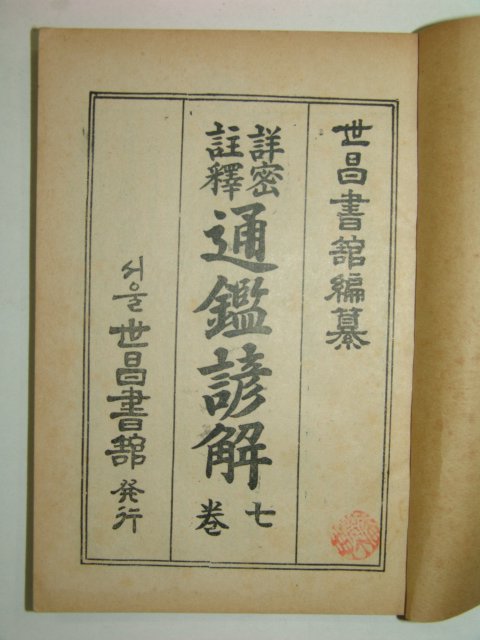 世昌書館編纂
詳密
註釋
通鑑諺解
七
卷
서울 世昌書舘 発行